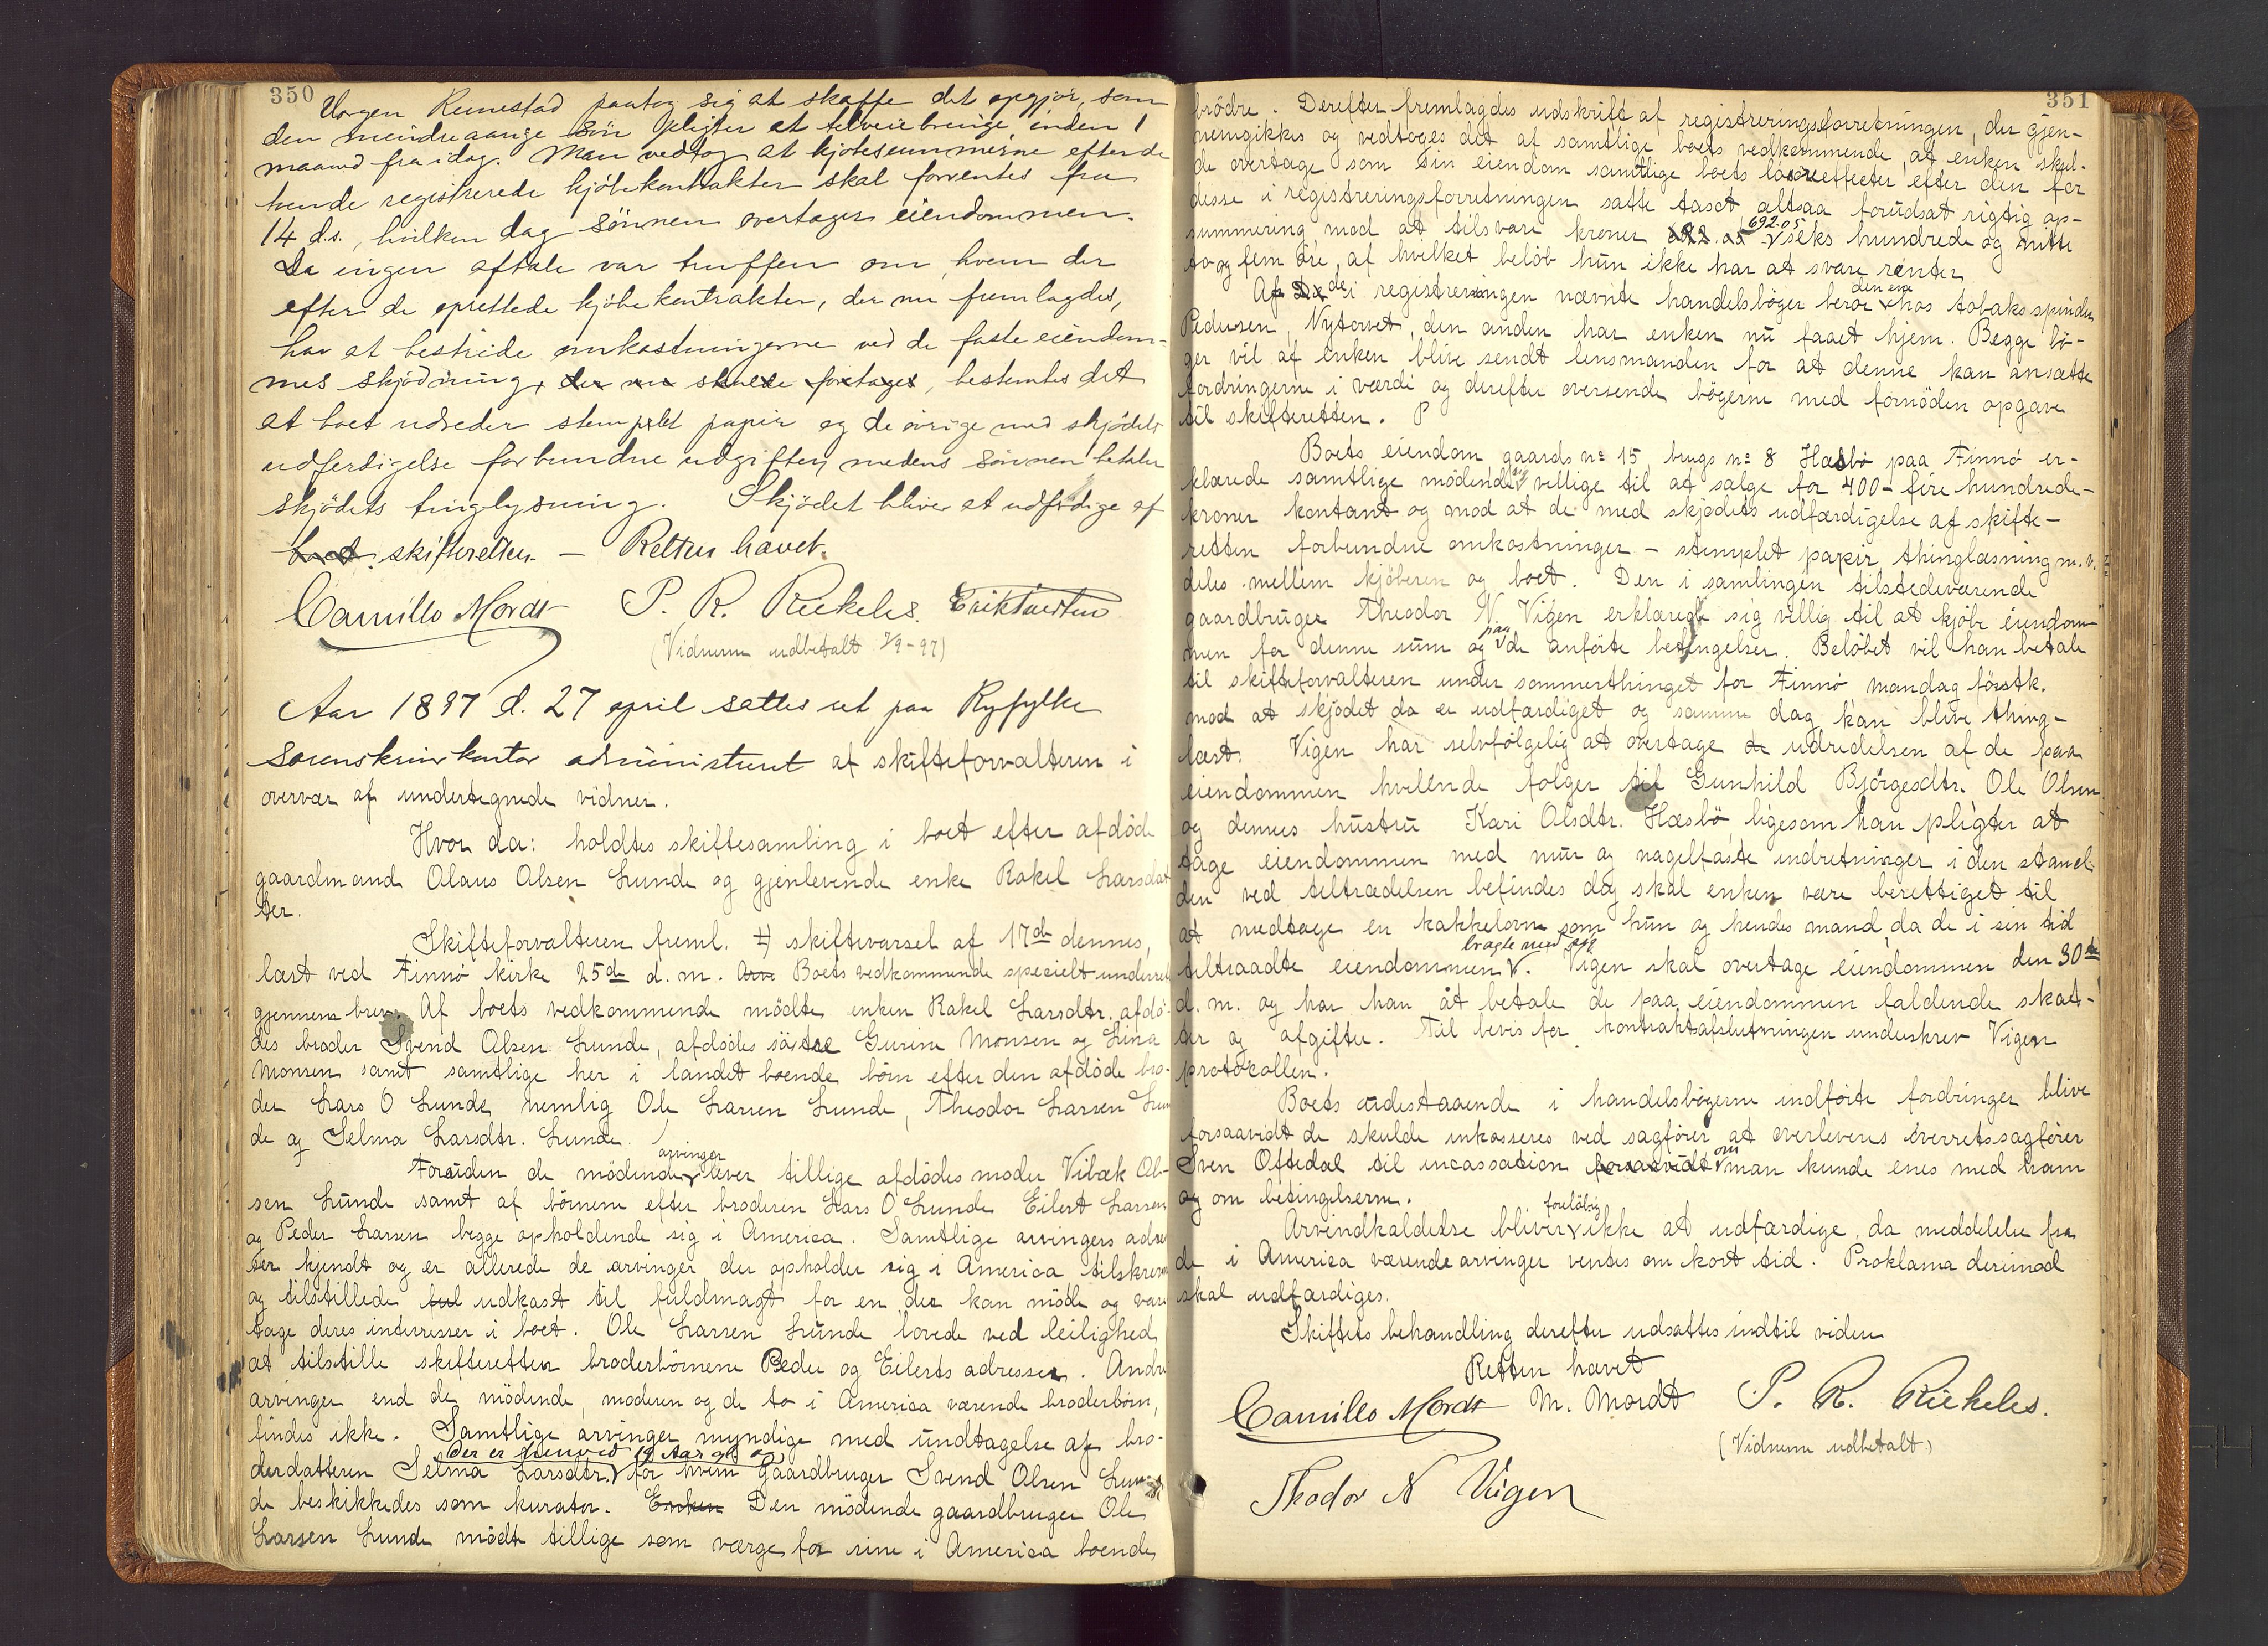 350
Vørgen Runestad paatog sig at skaffe det opgjør, som
den mindreaarige søn pligter at tilveiebringe, inden 1
maaned fra idag. Man vedtog at kjøbesummerne efter de
tvende registrerede kjøbekontrakter skal forrentes fra
14 d.s., hvilken dag sønnen overtager eiendommen.
Da ingen aftale var truffen om, hvem der
efter de oprettede kjøbekontrakter, der nu fremlagdes,
har at bestride omkostningerne ved de faste eiendom-
mes skjødning, der nu skulde foretages, bestemtes det
at boet udreder stemplet papir og de øvrige med skjødets
udferdigelse forbundne udgifter, medens sønnen betaler
skjødets tinglysning. Skjødet bliver at udferdige af
boet. skifteretten. — Retten hævet.
Camillo Mordt P. R. Riekeles. Erik Tuesten
(Vidnerne udbetalt 7/9-97)
Aar 1897 d. 27 april sattes ret paa Ryfylke
sorenskriverkontor administreret af skifteforvalteren i
overvær af undertegnede vidner.
Hvor da: holdtes skiftesamling i boet efter afdøde
gaardmand Olaus Olsen Lunde og gjenlevende enke Rakel Larsdat
ter.
Skifteforvalteren freml. 1) skiftevarsel af 17de dennes,
læst ved Finnø kirke 25de d. m. Boets vedkommende specielt underret
gjennem brev. Af boets vedkommende mødte enken Rakel Larsdtr. afdø-
des broder Svend Olsen Lunde, afdødes søstre Gurine Monsen og Lina
Monsen samt samtlige her i landet boende børn efter den afdøde bro-
der Lars O Lunde, nemlig Ole Larsen Lunde, Theodor Larsen Lun
de og Selma Larsdtr. Lunde.
arvinger
Foruden de mødende lever tillige afdødes moder Vibæk Ol-
sen Lunde samt af børnene efter broderen Lars O Lunde Eilert Larsen
og Peder Larsen begge opholdende sig i America. Samtlige arvingers adres
ser kjendt og er allerede de arvinger der opholder sig i America tilskrevne
og tilstillede ful udkast til fuldmagt for en, der kan møde og vare
tage deres interresser i boet. Ole Larsen Lunde lovede ved leilighed
at tilstille skifteretten broderbørnene Peder og Eilerts adresser. Andre
arvinger end de mødende, moderen og de to i America værende broderbørn,
findes ikke. Samtlige arvinger myndige med undtagelse af bro-
der er henved 19 Aar gl og
derdatteren Selma Larsdtr. for hvem gaardbruger Svend Olsen Lun-
de beskikkedes som kurator. Enken Den mødende gaardbruger Ole
Larsen Lunde mødte tillige som værge for sine i America boende
351
brødre. Derefter fremlagdes udskrift af registreringsforretningen, der gjen-
nemgikkes og vedtoges det af samtlige boets vedkommende, at enken skul-
de overtage som sin eiendom samtlige boets løsøreeffecter efter den for
disse i registreringsforretningen satte taxt altsaa forudsat rigtig op-
692.05
summering mod at tilsvare kroner seks hundrede og nitti
to og fem øre, af hvilket beløb hun ikke har at svare renter
den ene
Af De de i registreringen nævnte handelsbøger beror hos tobaksspinder
Pedersen, Nytorvet, den anden har enken nu faaet hjem. Begge bø-
ger vil af enken blive sendt lensmanden for at denne kan ansætte
fordringerne i værdi og derefter oversende bøgerne med fornøden opgave
til skifteretten.
Boets eiendom gaards no 15 brugs no 8 Hæsbø paa Finnø er-
sig
klærede samtlige mødende villige til at sælge for 400- fire hundrede-
kroner kontant og mod at de med skjødets udfærdigelse af skifte-
retten forbundne omkostninger – stemplet papir, thinglæsning m. v.
deles mellem kjøberen og boet. Den i samlingen tilstedeværende
gaardbruger Theodor N. Vigen erklærede sig villig til at kjøbe eiendom-
paa
men for denne sum og de anførte betingelser. Beløbet vil han betale
til skifteforvalteren under sommerthinget for Finnø mandag førstk.
mod at skjødet da er udfærdiget og samme dag kan blive thing-
læst. Vigen har selvfølgelig at overtage udredelsen af de paa
eiendommen hvilende følger til Gunhild Bjørgesdtr. Ole Olsen
og dennes hustru Kari Olsdtr. Hæsbø, ligesom han pligter at
tage eiendommen med mur og nagelfaste indretninger i den stand
den ved tiltrædelsen befindes dog skal enken være berettiget til
at medtage en kakkelovn som hun og hendes mand, da de i sin tid
bragte med sig
tiltraadte eiendommen. Vigen skal overtage eiendommen den 30te
d. m. og har han at betale de paa eiendommen faldende skat-
ter og afgifter. Til bevis for kontraktafslutningen underskrev Vigen
protocollen.
Boets udestaaende i handelsbøgerne indførte fordringer blive
forsaavidt de skulde inkasseres ved sagfører at overleveres overretssagfører
om
Sven Oftedal til incassation forsaavidt man kunde enes med ham
og om betingelserne.
foreløbig
Arvindkaldelse bliver ikke at udfærdige, da meddelelse fra
de i America værende arvinger ventes om kort tid. Proklama derimod
skal udfærdiges.
Skiftets behandling derefter udsattes indtil videre
Retten hævet
Camillo Mordt M. Mordt P. R. Riekeles.
(Vidnerne udbetalt)
Theodor N Vigen